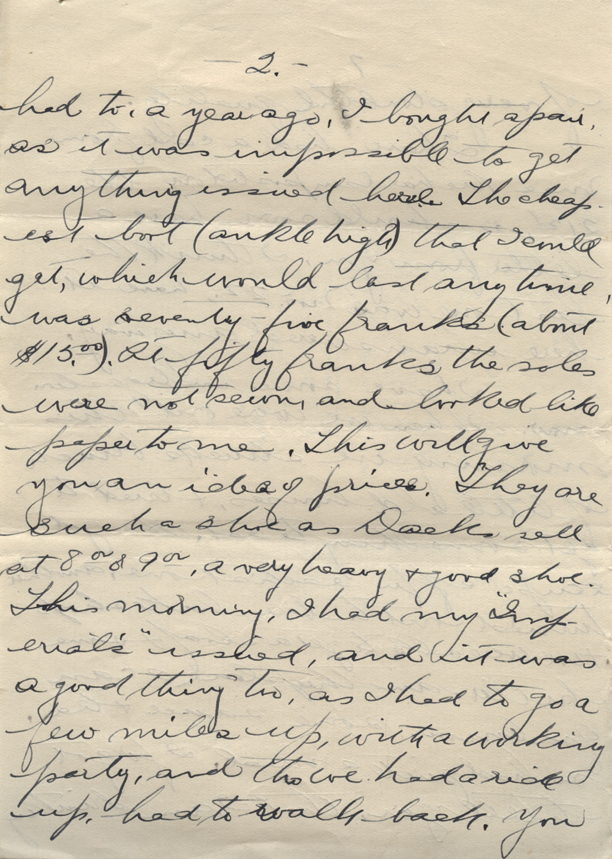 -2.-
had to, a year ago, I bought a pair,
as it was impossible to get
anything issued here. The cheap-
est boot (ankle high) that I could
get, which would last any time,
was seventy-five franks (about
$15.00). At fifty franks, the soles
were not sewn, and looked like
paper to me. This will give
you an idea of prices. They are
such a shoe as Dacks sell
at 8 or 9 00, a very heavy & good shoe.
This morning, I had my "Imp-
erials" issued, and it was
a good thing too, as I had to go a
few miles up, with a working
party, and tho we had a ride
up, had to walk back. You